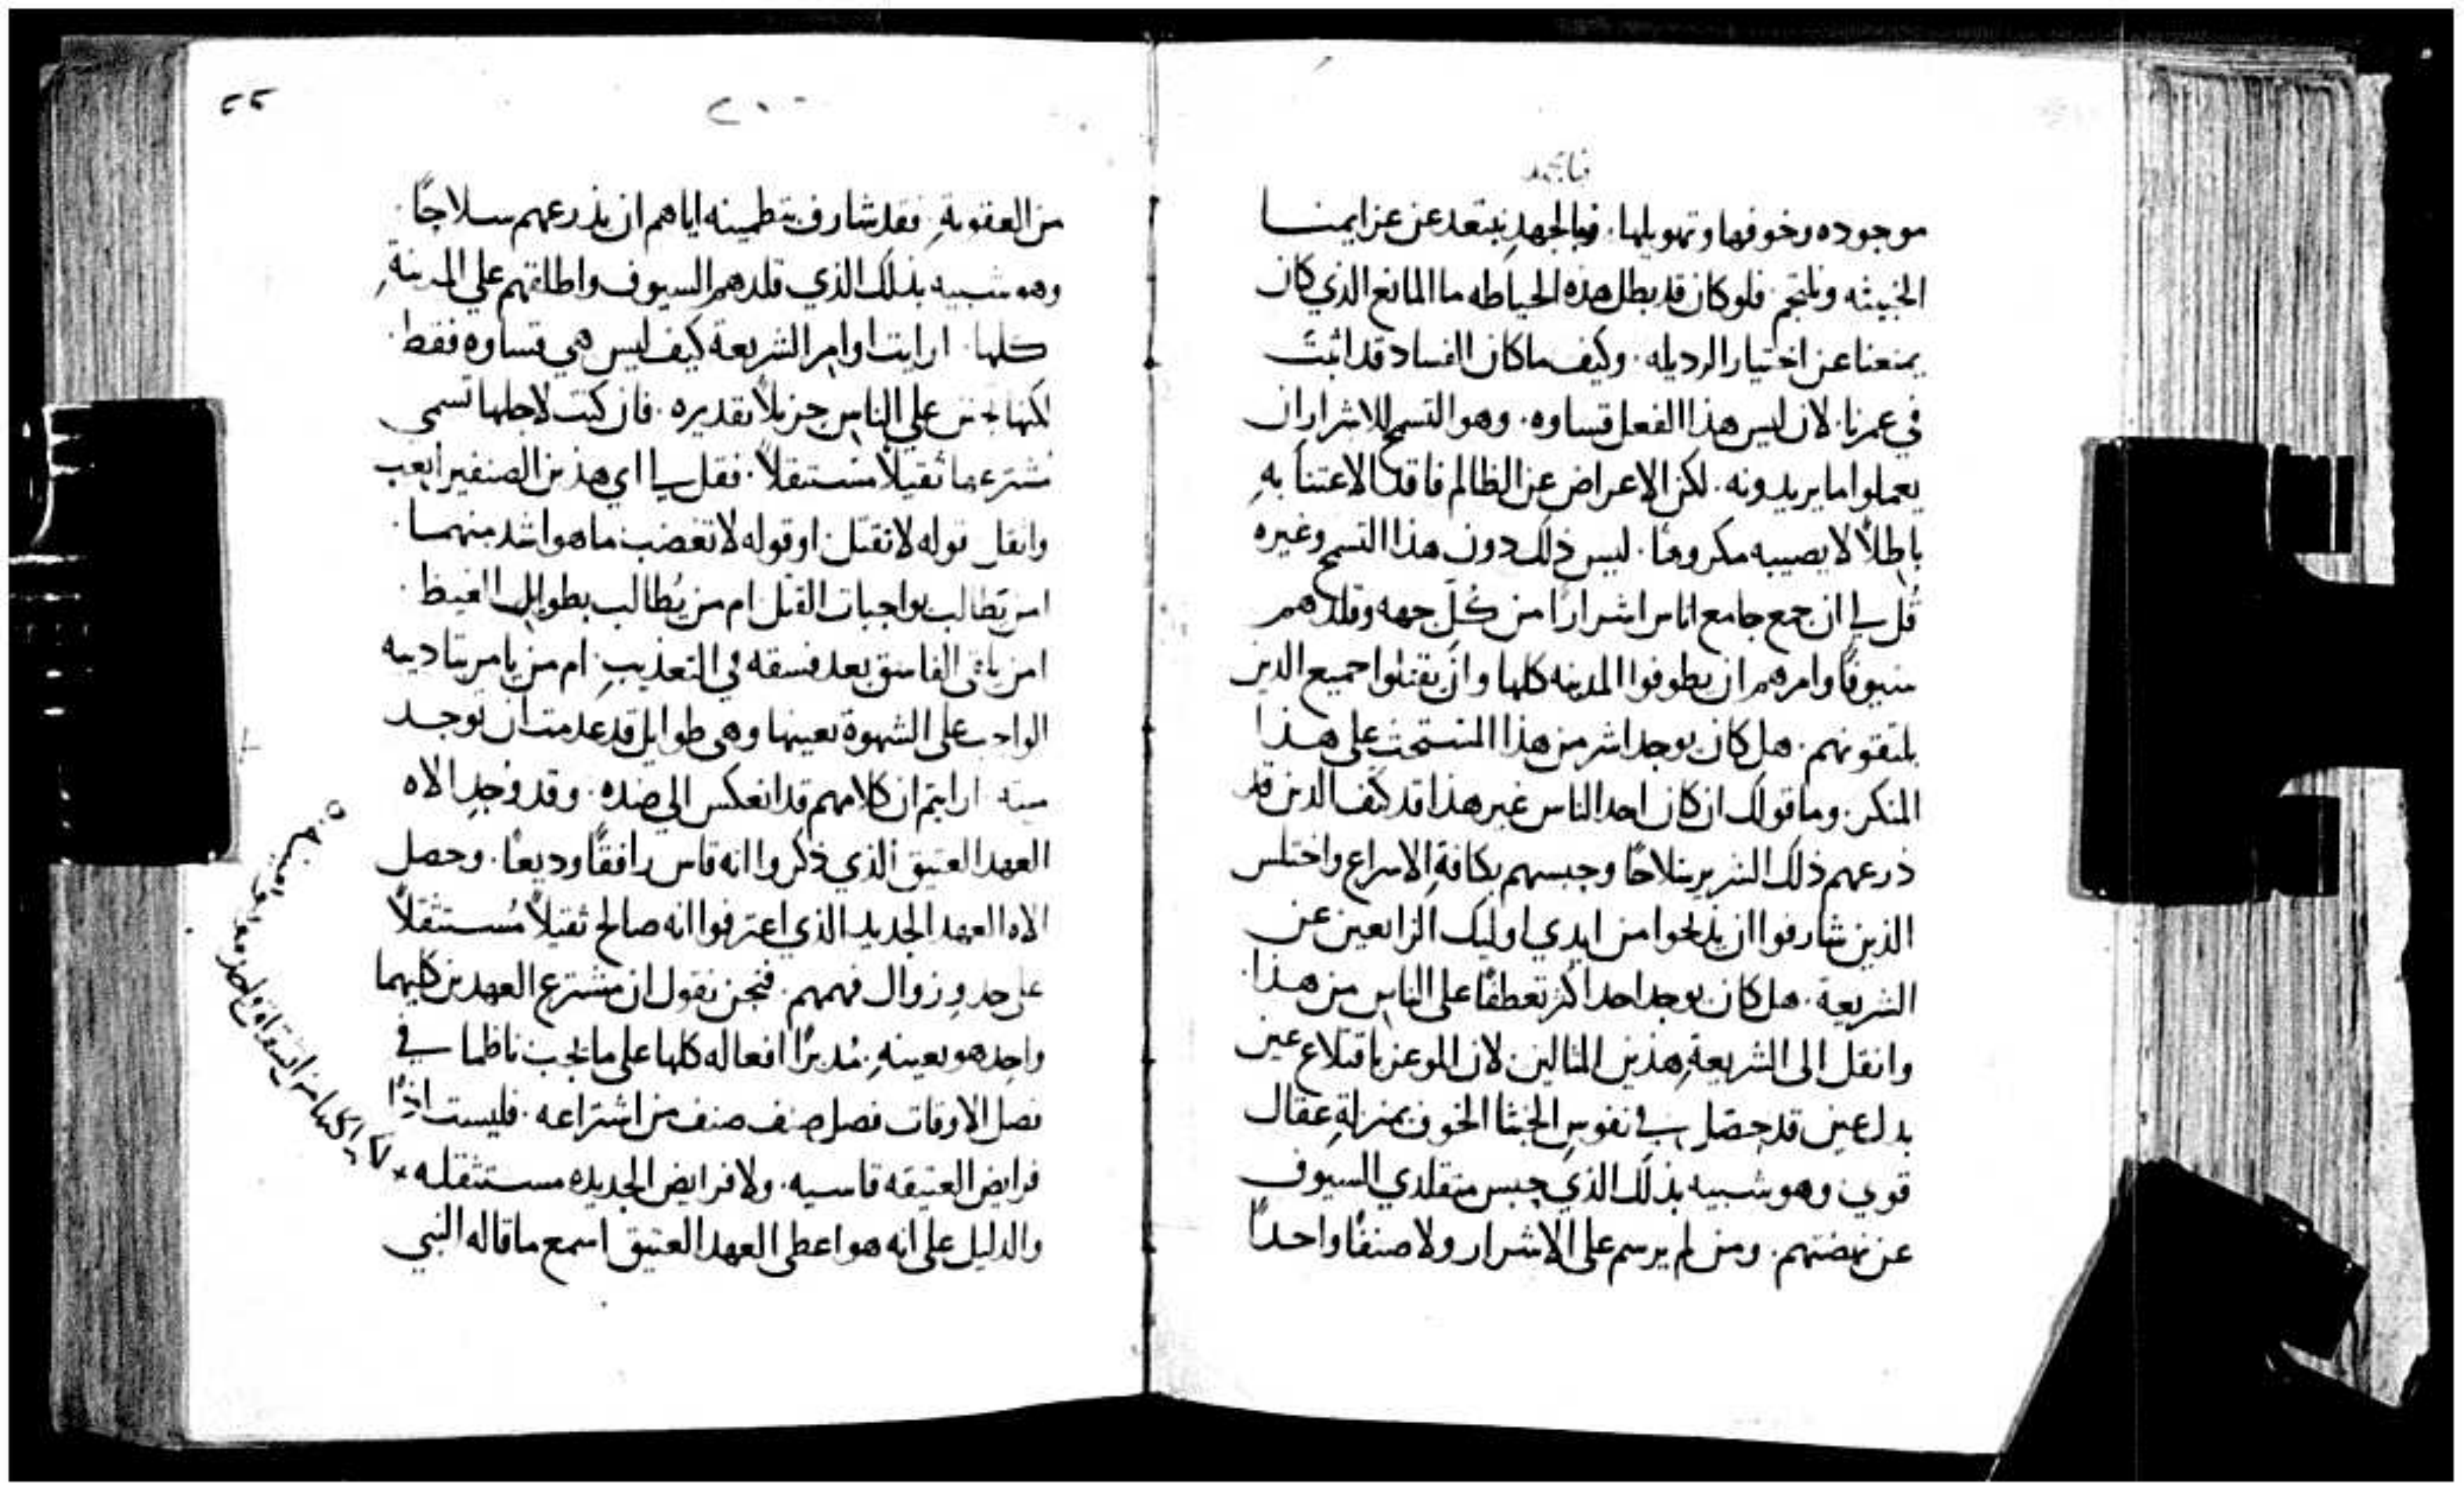 فبالجهد
موجوده وخوفها وتهويلها. فبالجهد نبتعد عن عزايمنا
الخبيثه ونلتجم. فلو كان قد بطل هذه الحياطه ما المانع الذي كان
يمنعنا عن اختيار الرديله. وكيف ما كان الفساد قد اثبت
في عمرنا. لان ليس هذا الفعل قساوه. وهو التسمح للاشرار ان
يعملوا ما يريدونه. لكن الاعراض عن الظالم فاقدًا الاعتنا به
باطلًا لا يصيبه مكروهًا. ليس ذلك دون هذا التسمح وغيره
قُل لي ان جمع جامع اناس اشرارًا من كل جهه وقلدهم
سيوفًا وامرهم ان يطوفوا المدينه كلها وان يقتلوا جميع الذين
يلتقونهم. هل كان يوجد اشر من هذا المستحث على هذا
المنكر. وما قولك ان كان احد الناس غير هذا قد كتف الذين قد
ذرعهم ذلك الشرير سلاحًا وحبسهم بكافة الاسراع واختلس
الذين شارفوا ان يذبحوا من ايدي اوليك الزايعين عن
الشريعة. هل كان يوجد احد اكثر تعطفًا على الناس من هذا
وانقل الى الشريعة هذين المثالين لان الموعز باقتلاع عين
بدل عين قد حصّل في نفوس الخبثا الخوف بمنزلة عقال
قوي وهو شبيه بذلك الذي حبس متقلدي السيوف
عن نهضتهم. ومن لم يرسم على الاشرار ولا صنفًا واحدًا
٢٢
من العقوبة. فقد شارف بتطمينه اياهم ان يذرعهم سلاحًا
وهو شبيه بذلك الذي قلدهم السيوف واطلقهم علي المدينة
كلها. ارايت اوامر الشريعة كيف ليس هي قساوه فقط
لكنها علي الناس جزيلًا تقديره. فان كنت لاجلها تسمي
مُشترعها ثقيلًا مستثقلًا. فقل لي اي هذين الصنفين اتعب
وانقل قوله لا تقتل. او قوله لا تغضب ما هو اشد منهما
امن يطالب بواجبات القتل ام من يُطالب بطوايل الغيظ
امن يلقي الفاسق بعد فسقه في التعذيب. ام من يامر بتاديه
الواجب على الشهوة بعينها وهي طوايل قد عدمت ان توجد
ميته ارايتم ان كلامهم قد انعكس الي ضده. وقد وُجد الاه
العهد العتيق الذي ذكروا انه قاس رافقًا وديعًا. وحصل
الاه العهد الجديد الذي اعترفوا انه صالح ثقيلًا مُستثقلًا
على حد زوال فهمهم. فنحن نقول ان مشترع العهدين كليهما
واحد هو بعينه. مُدبرًا افعاله كلها على ما يجب ناظما في
فصل الاوقات فصل صنف صنف من اشتراعه. فليست اذًا
فرايض العتيقه قاسيه. ولا فرايض الجديده مستثقله
والدليل على انه هو اعطى العهد العتيق اسمع ما قاله النبي